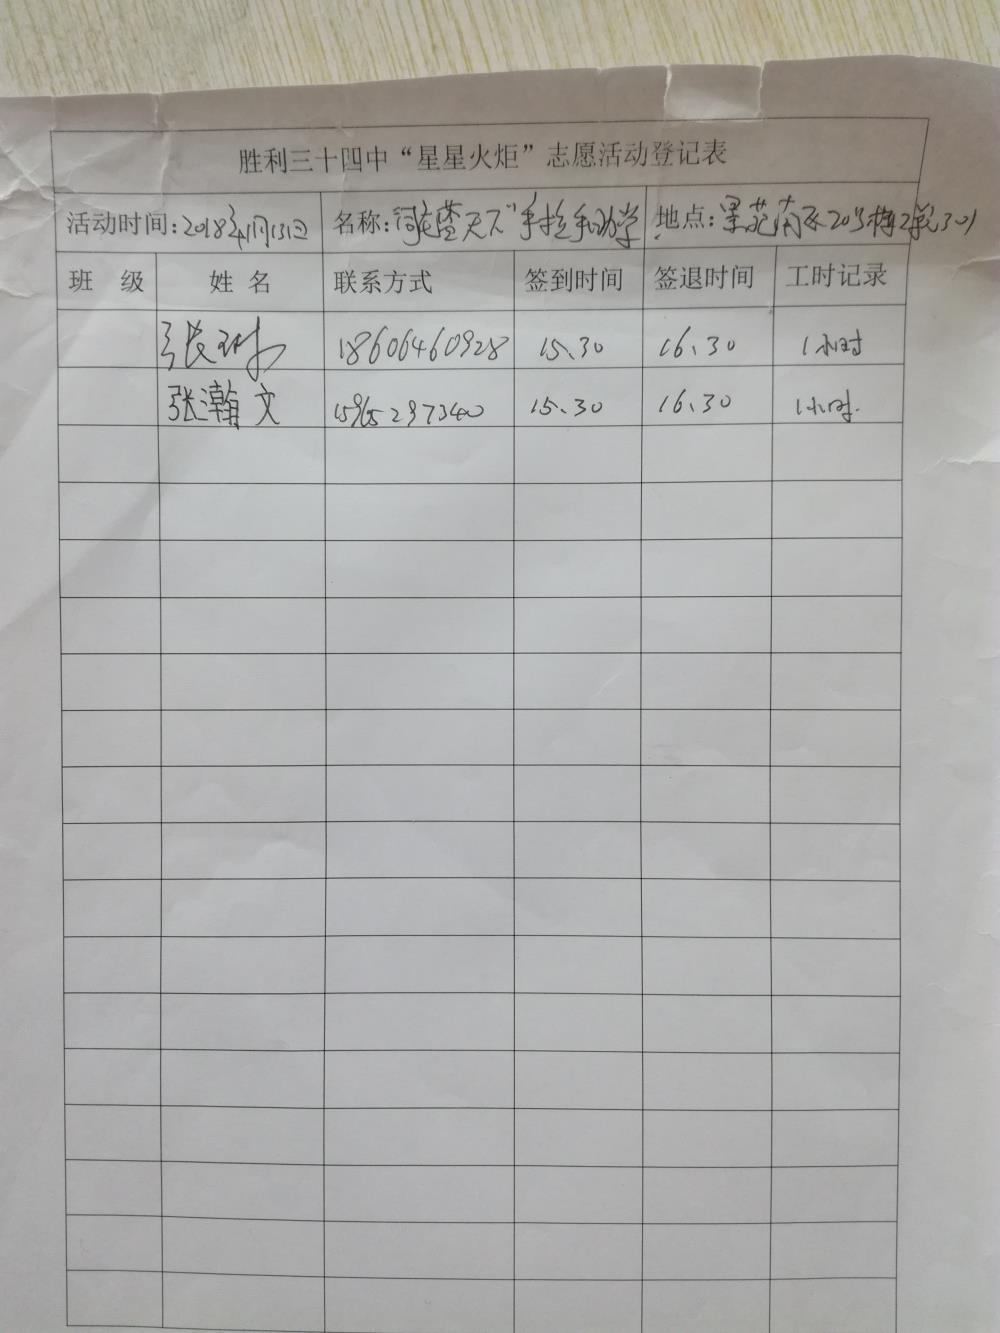 胜利三十四中“星星火炬”志愿活动登记表
活动时间:2018年1月31日 名称:同在蓝天下"手拉手助学 地点:景苑南区20号楼2单元301
班 级 姓 名 联系方式 签到时间 签退时间 工时记录
张琳 18606460928 15.30 16.30 1小时
张瀚文 15965297340 15.30 16.30 1小时.